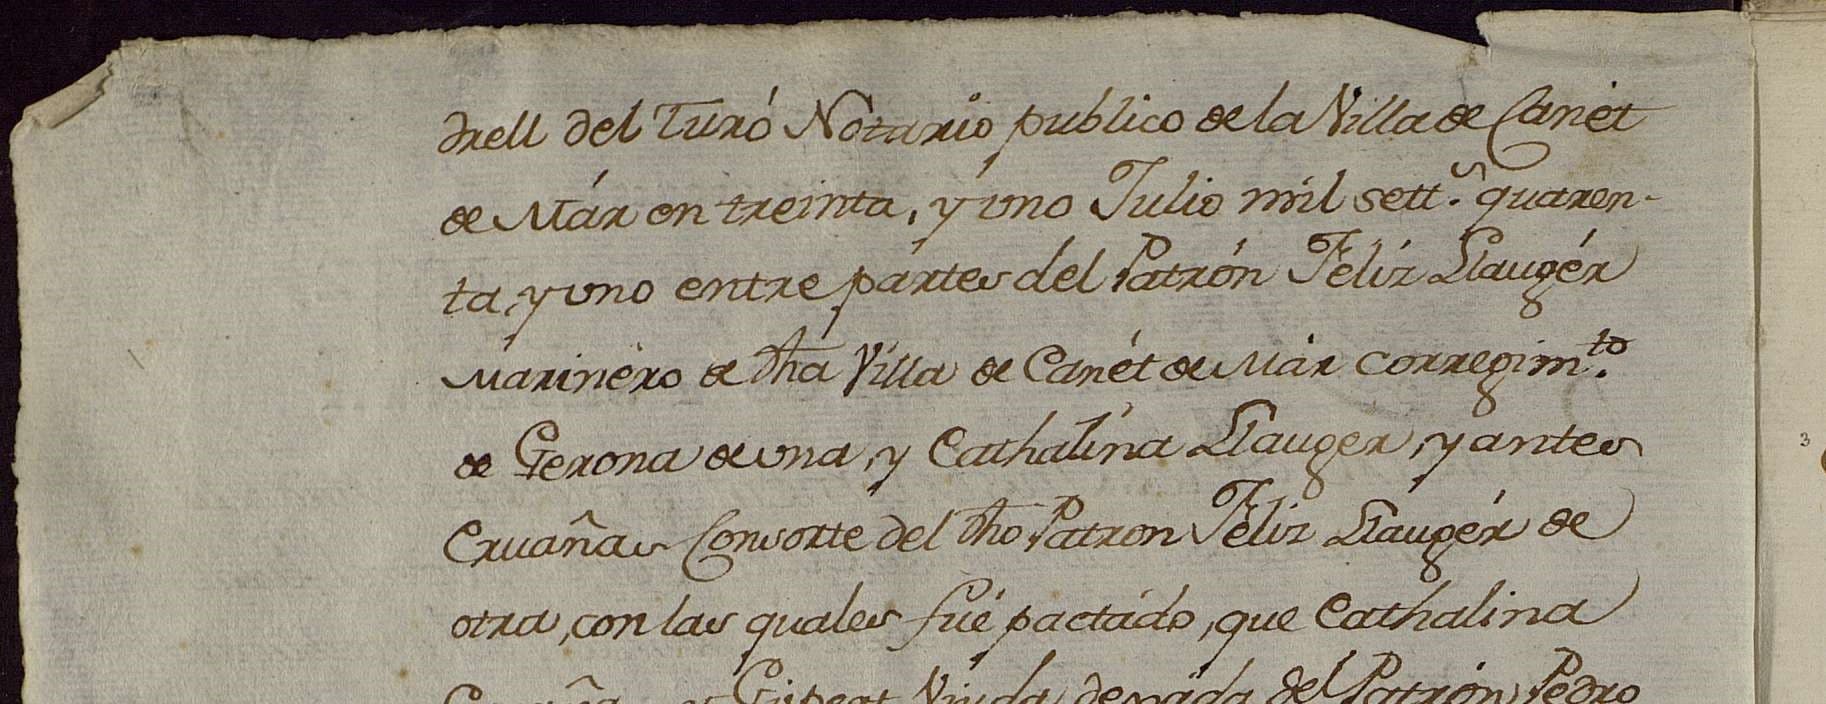 drell del Turó Notario publico de la Villa de Canét
de Már en treinta, y uno Julio mil sett.ˢ quaren-
ta, y uno entre pártes del Patrón Féliz Llaugér
Marinéro de dha Villa de Canét de Már corregimᵗᵒ.
de Gerona de una, y Cathalina Llauger, y antes
Cruañas Consorte del dho Patron Féliz Llaugér de
otra, con las quales fué pactádo, que Cathalina
Cruañas y Gispert Viuda dexáda del Patrón Pedro
3